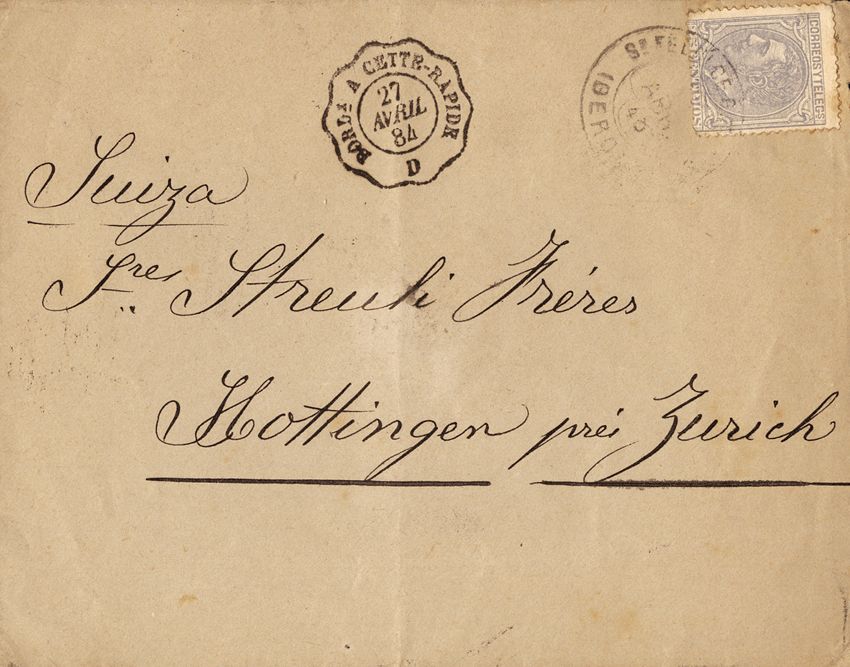 BORD.x A CETTE-RAPIDE
27
AVRIL
84
D
Sn FEL
(GERO
CORREOS Y TELEGS
Suiza
Sres Streuli Fréres
Hottingen prés Zurich